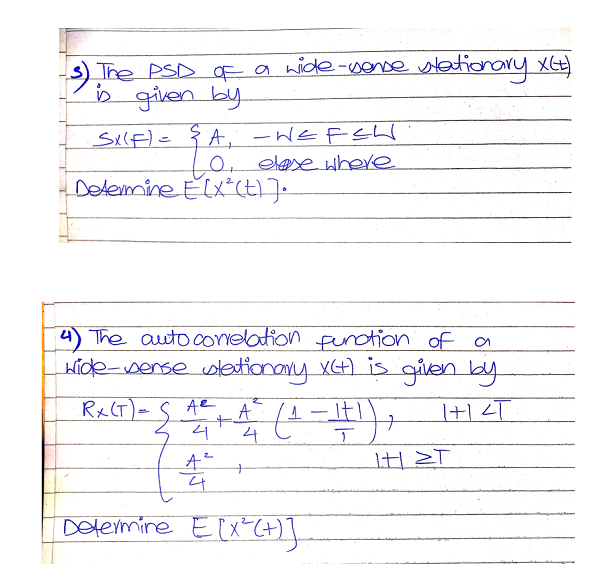 3) The PSD of a wide-sense stationary X(t)
is given by
Sx(F) = { A, -W ≤ F ≤ W
0, elsewhere
Determine E[X²(t)].
4) The autocorrelation function of a
wide-sense stationary X(t) is given by
Rx(T) = { A²/4 + A²/4 (1 - |t|/T), |t| < T
A²/4, |t| ≥ T
Determine E[X²(t)]